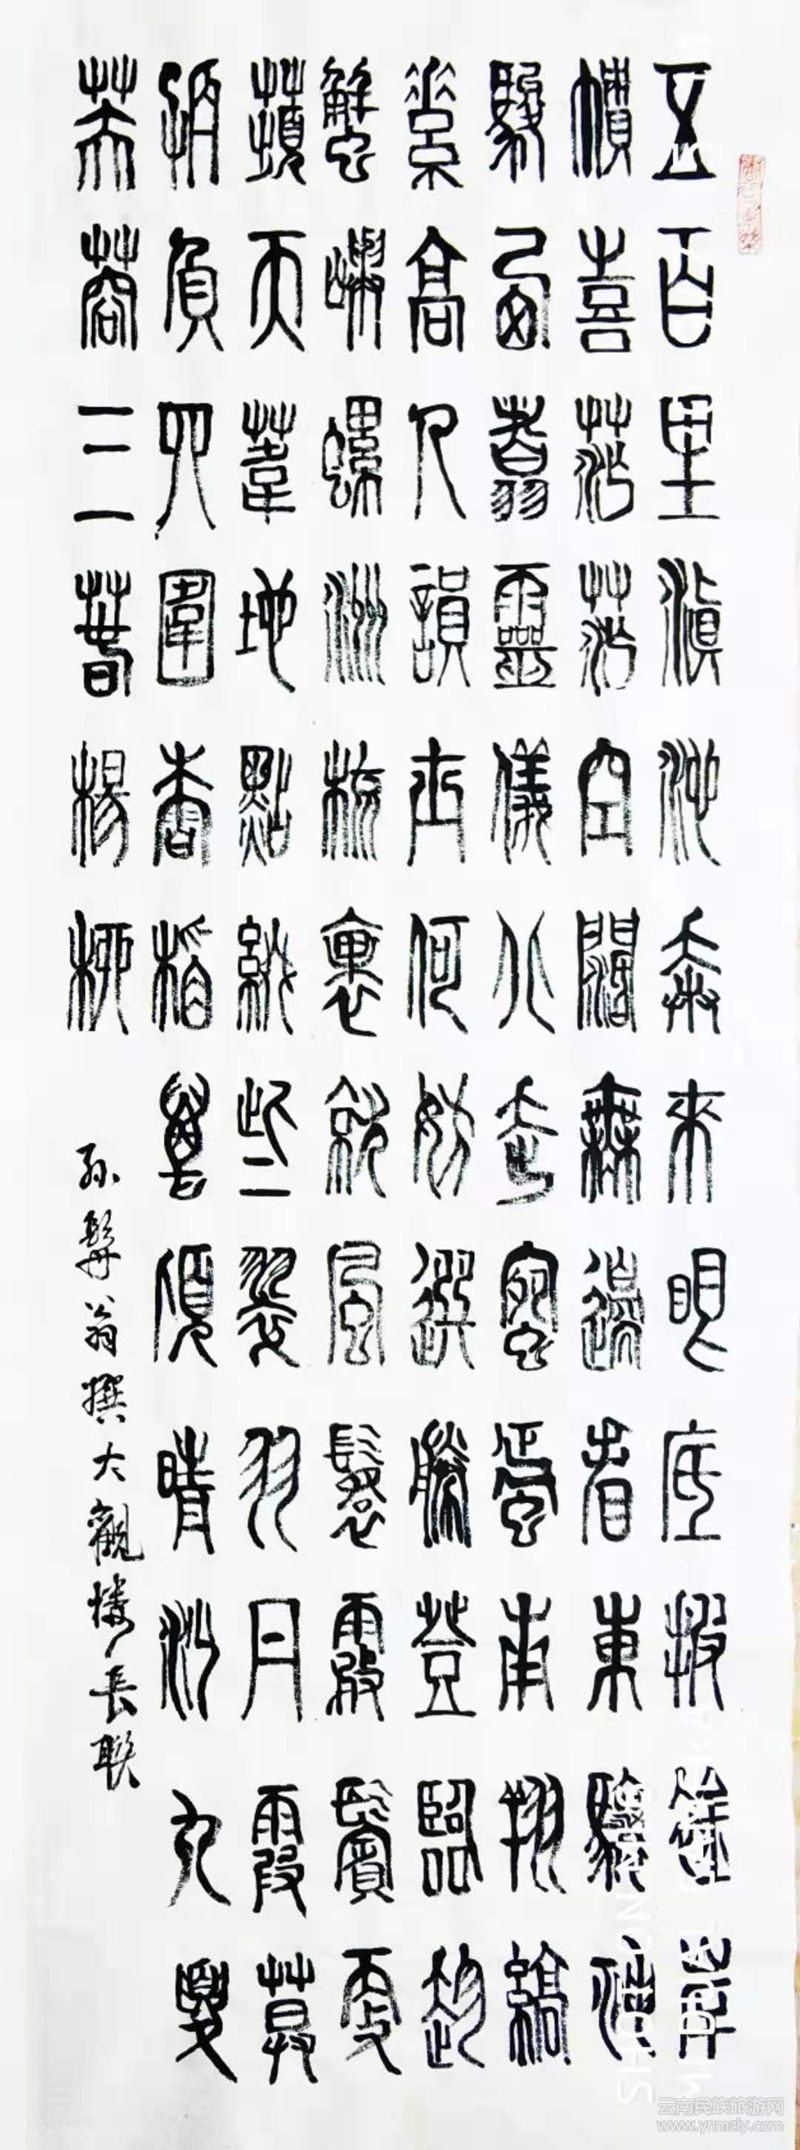 五百里滇池奔來眼底披襟岸
幘喜茫茫空闊無邊看東驤神
駿西翥靈儀北走蜿蜒南翔縞
素高人韻士何妨選勝登臨趁
蟹嶼螺洲梳裹就風鬟霧鬢更
蘋天葦地點綴些翠羽丹霞莫
孤負四圍香稻萬頃晴沙九夏
芙蓉三春楊柳
孫髯翁撰大觀樓長聯
SHOT ON
云南民族旅游网
www.ynmzly.com